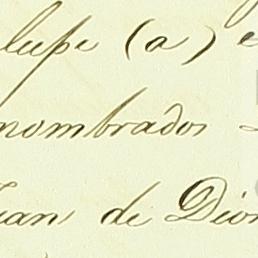 lupe (a) e
nombrados
Juan de Dion